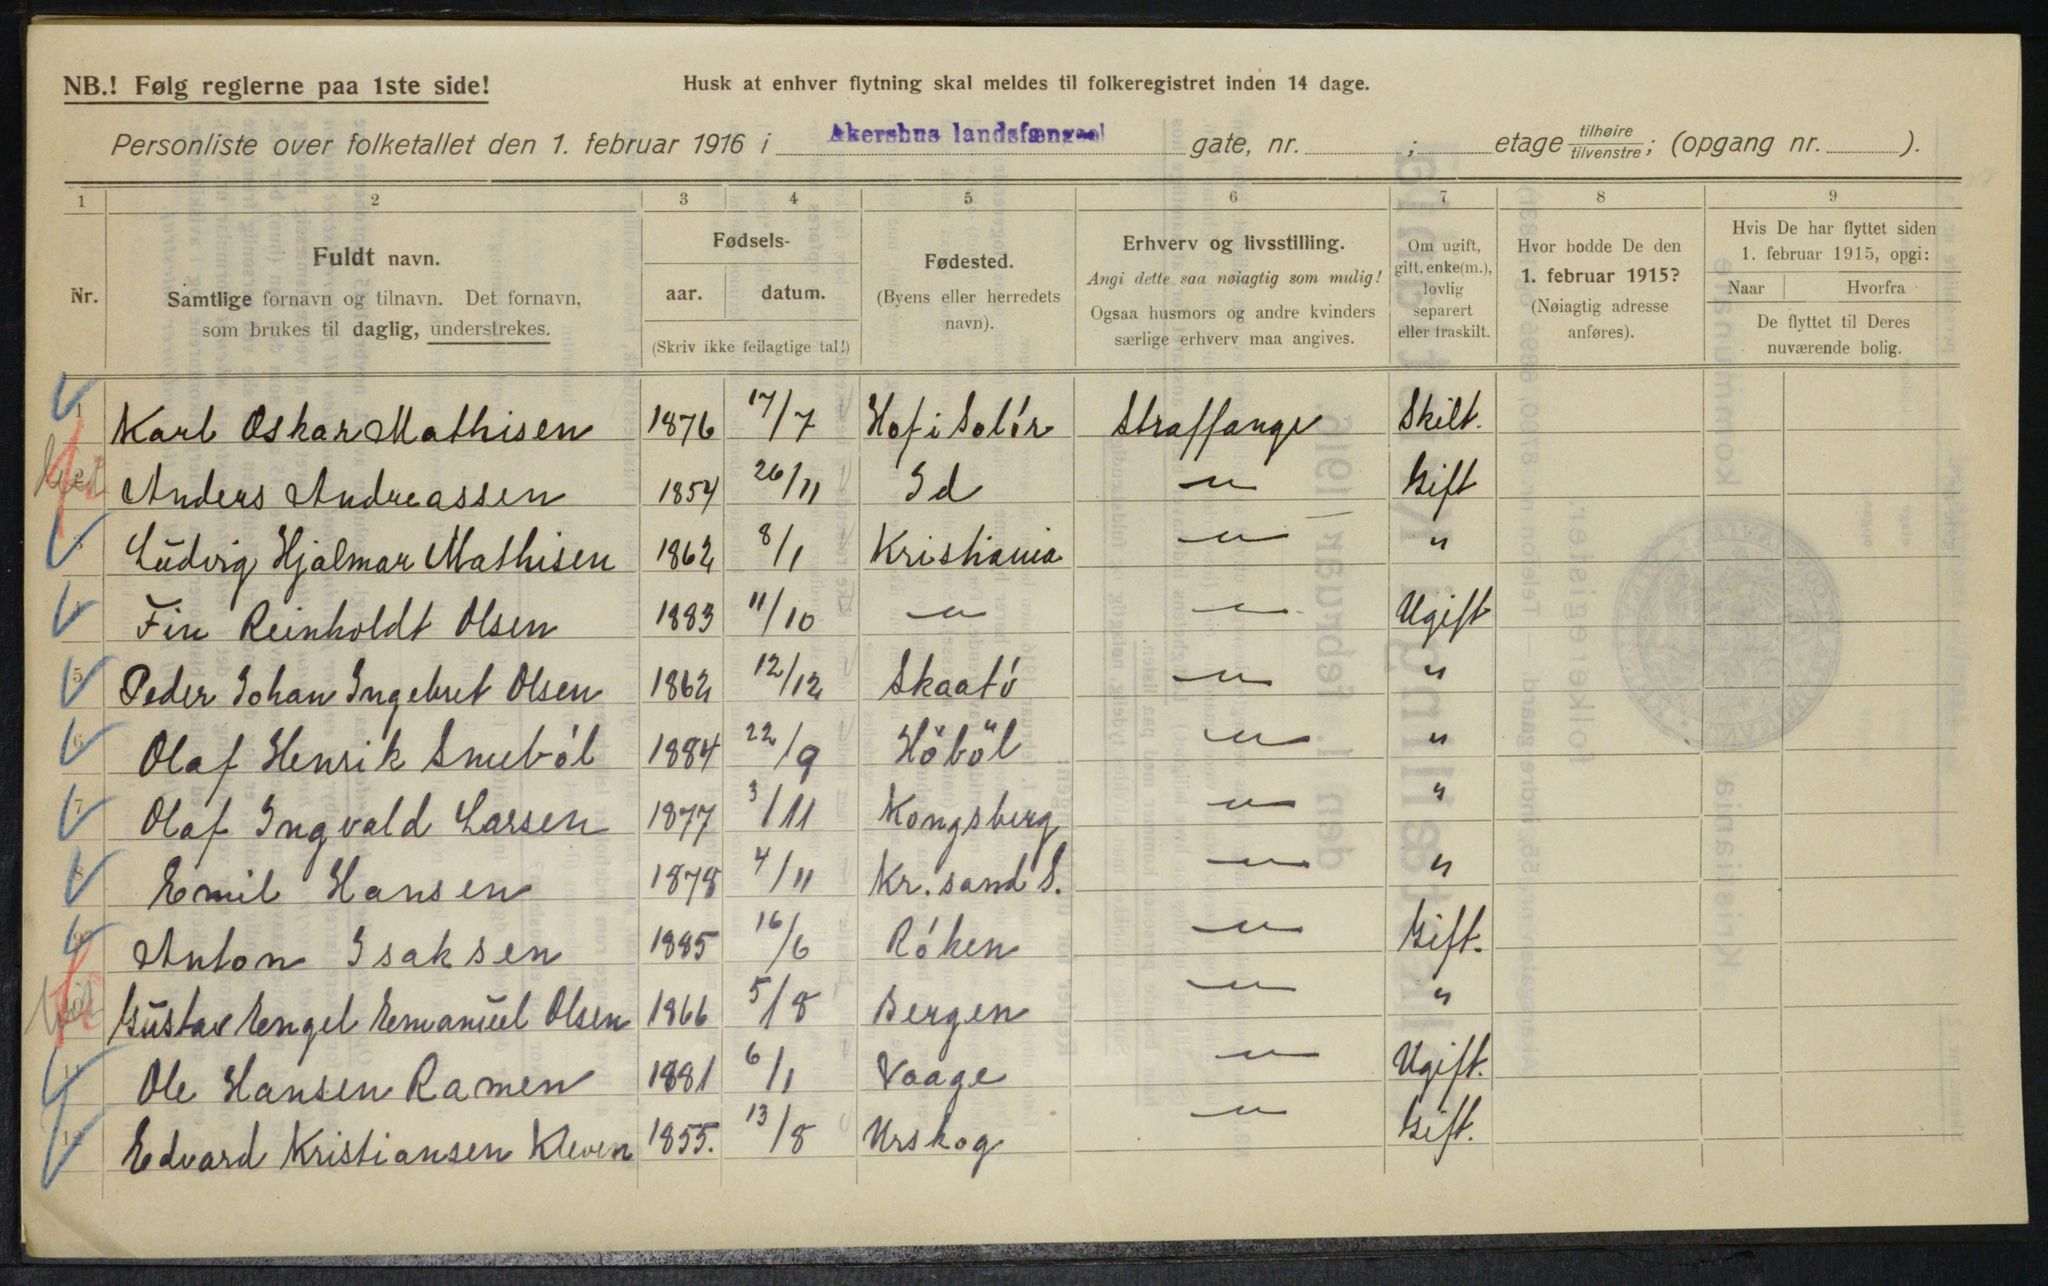 NB.! Følg reglerne paa 1ste side!
Husk at enhver flytning skal meldes til folkeregistret inden 14 dage.
Personliste over folketallet den 1. februar 1916 i Akershus landsfængsel gate, nr. ; etage tilhøire/tilvenstre; (opgang nr. ).
1 2 3 4 5 6 7 8 9
Nr.
Fuldt navn.
Samtlige fornavn og tilnavn. Det fornavn,
som brukes til daglig, understrekes.
Fødsels-
aar. datum.
(Skriv ikke feilagtige tal!)
Fødested.
(Byens eller herredets
navn).
Erhverv og livsstilling.
Angi dette saa nøiagtig som mulig!
Ogsaa husmors og andre kvinders
særlige erhverv maa angives.
Om ugift,
gift, enke(m.),
lovlig
separert
eller fraskilt.
Hvor bodde De den
1. februar 1915?
(Nøiagtig adresse
anføres).
Hvis De har flyttet siden
1. februar 1915, opgi:
Naar Hvorfra
De flyttet til Deres
nuværende bolig.
1 Karl Oskar Mathisen 1876 17/7 Hof i Solør Straffange Skilt.
2 Anders Andreassen 1854 26/11 Id — " — Gift
3 Ludvig Hjalmar Mathisen 1862 8/1 Kristiania — " — "
4 Fin Reinholdt Olsen 1883 11/10 — " — — " — Ugift
5 Peder Johan Ingebret Olsen 1862 12/12 Skaatö — " — "
6 Olaf Henrik Smeböl 1884 22/9 Höböl — " — "
7 Olaf Ingvald Larsen 1877 3/11 Kongsberg — " — "
8 Emil Hansen 1878 4/11 Kr.sand S. — " — "
9 Anton Isaksen 1885 16/6 Röken — " — Gift.
10 Gustav Engel Emanuel Olsen 1866 5/8 Bergen — " — "
11 Ole Hansen Ramen 1881 6/1 Vaage — " — Ugift.
12 Edvard Kristiansen Kleven 1855. 13/8 Urskog — " — Gift.